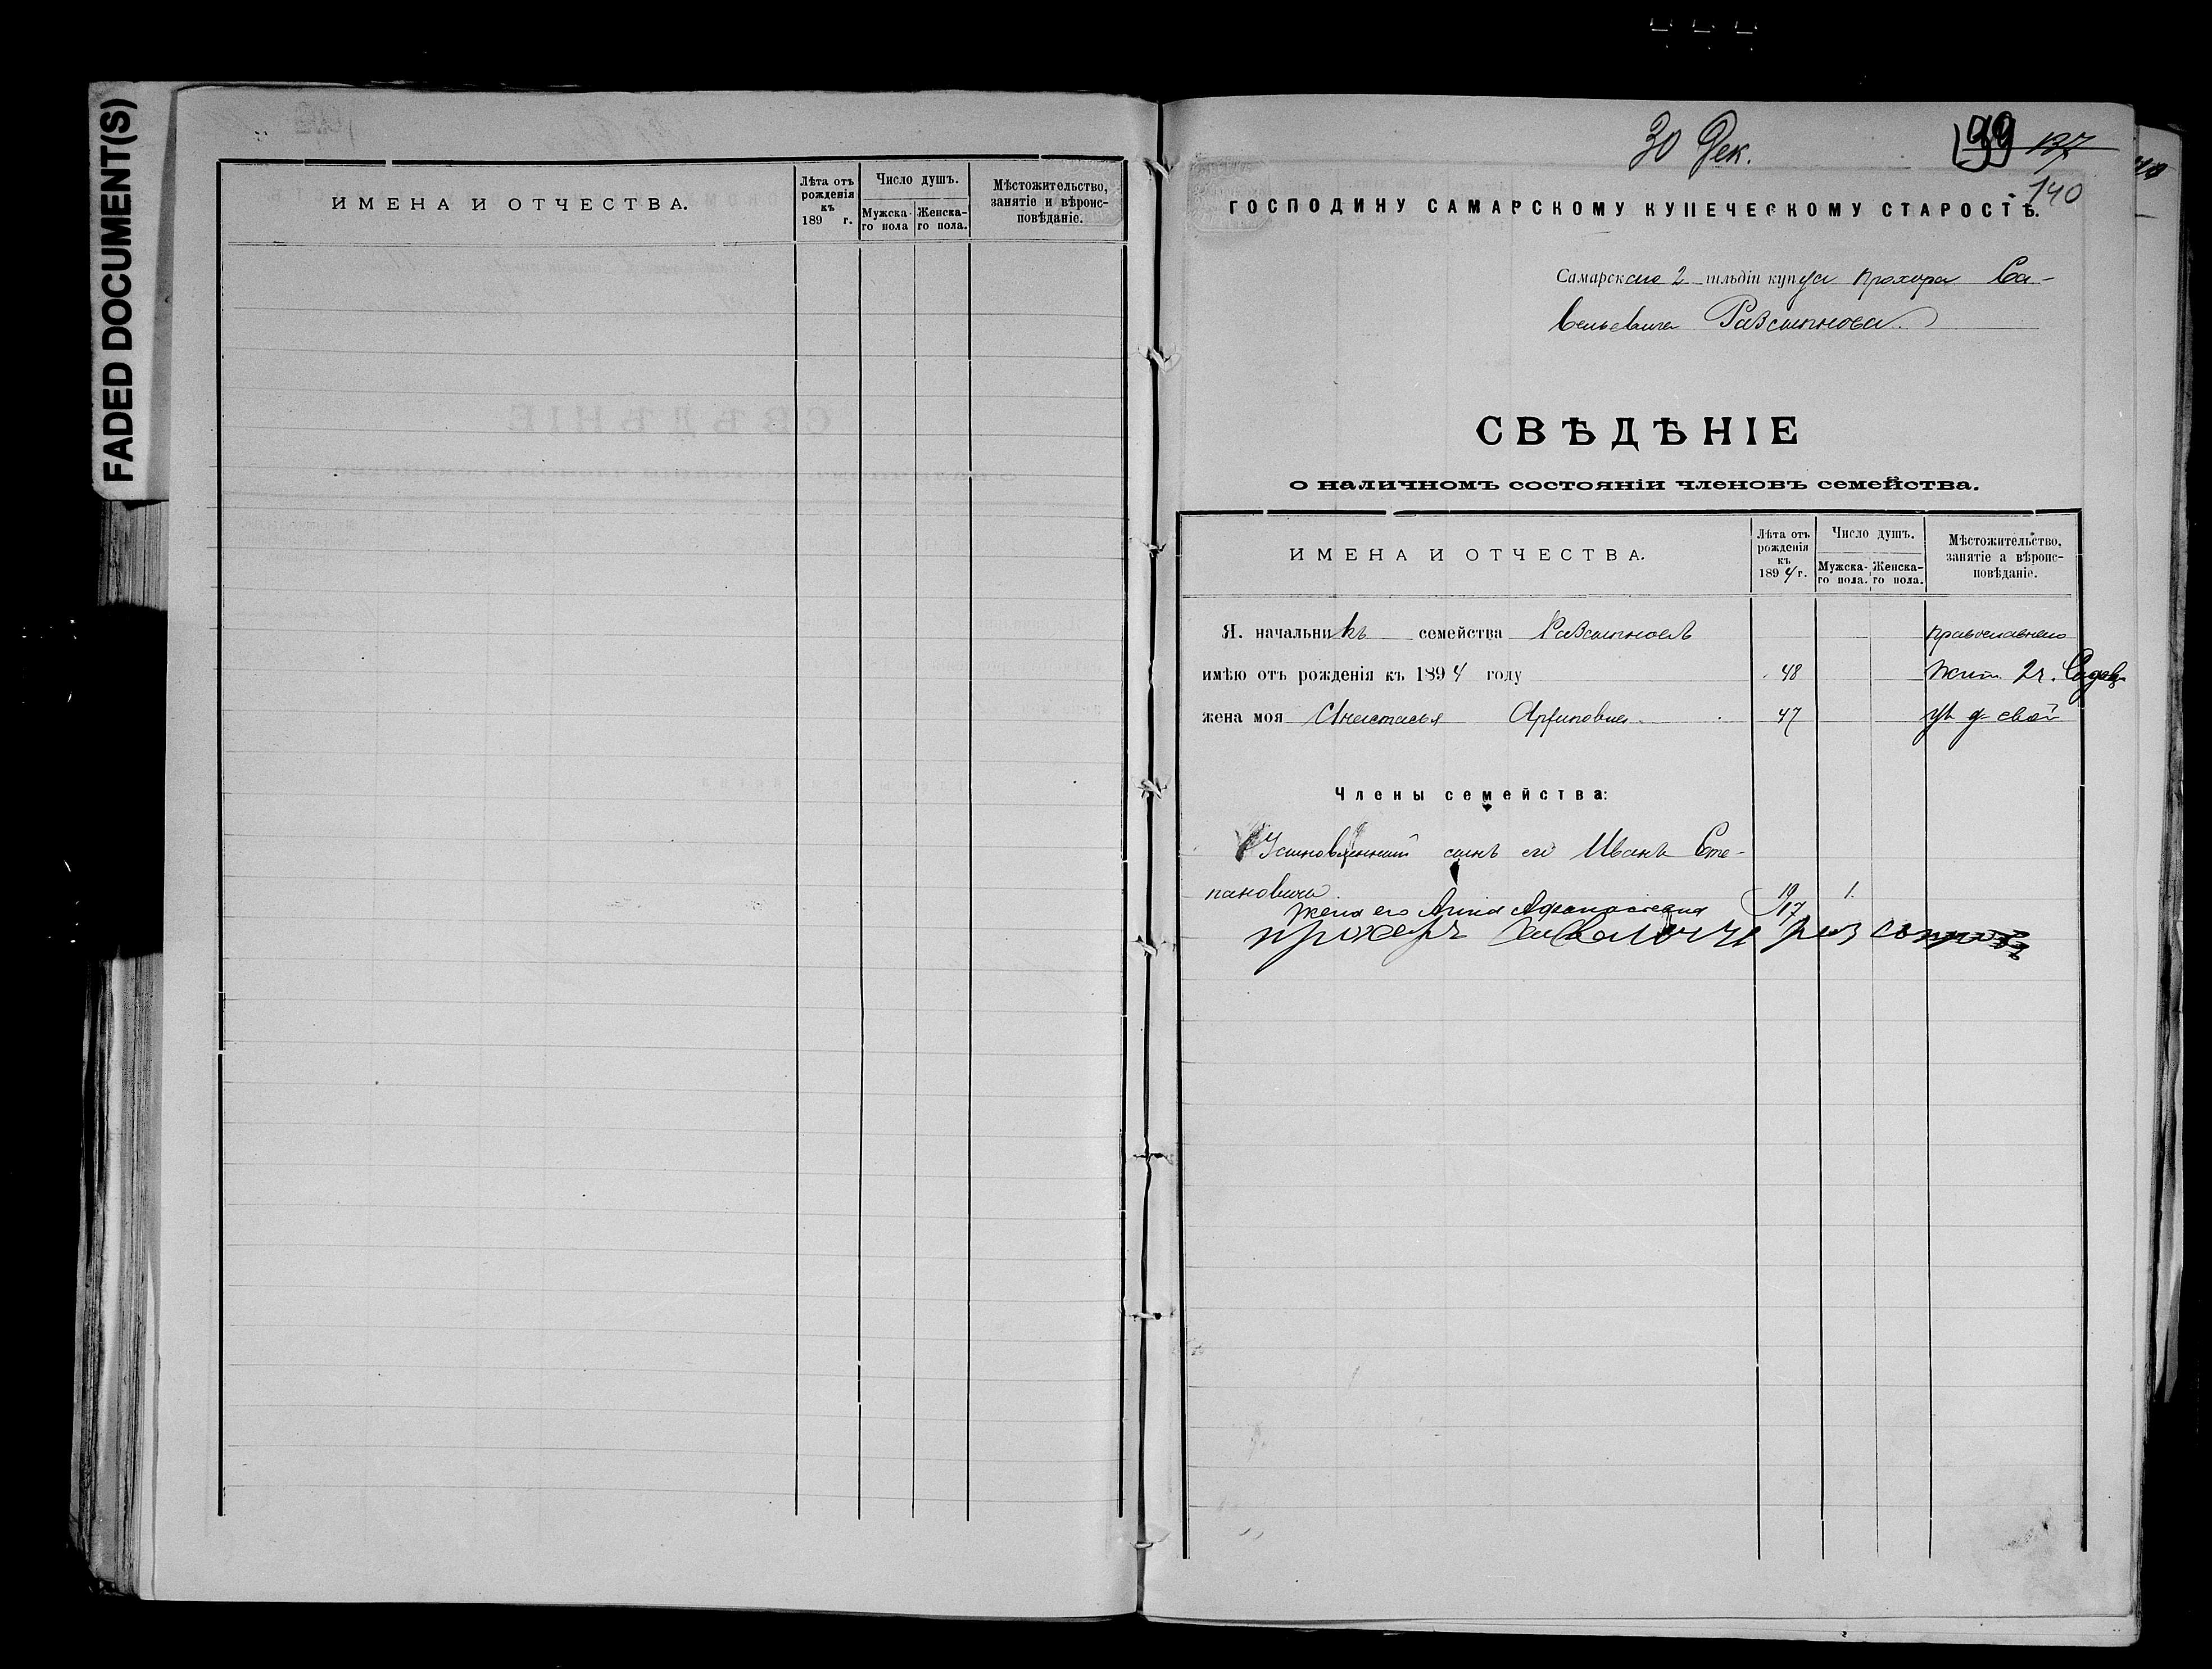 FADED DOCUMENT(S)
ИМЕНА И ОТЧЕСТВА.
Лѣта отъ рожденія къ 189 г.
Число душъ.
Мужска-го пола
Женска-го пола.
Мѣстожительство, занятіе и вѣроис-повѣданіе.
30 Дек.
99 137
140
ГОСПОДИНУ САМАРСКОМУ КУПЕЧЕСКОМУ СТАРОСТѢ.
Самарскаго 2 гильдіи купца Прохора Са-
вельевича
СВѢДѢНІЕ
о наличномъ состояніи членовъ семейства.
ИМЕНА И ОТЧЕСТВА.
Лѣта отъ рожденія къ 1894 г.
Число душъ.
Мужска-го пола.
Женска-го пола.
Мѣстожительство, занятіе а вѣроис-повѣданіе.
Я. начальникъ семейства
имѣю отъ рожденія къ 1894 году 48 жит. 2 ч.
жена моя Анастасья Архиповна 47 свой
Члены семейства:
Усыновленный сынъ его Иванъ Сте-
пановичъ 19 1.
жена его Анна Афанасьевна 17